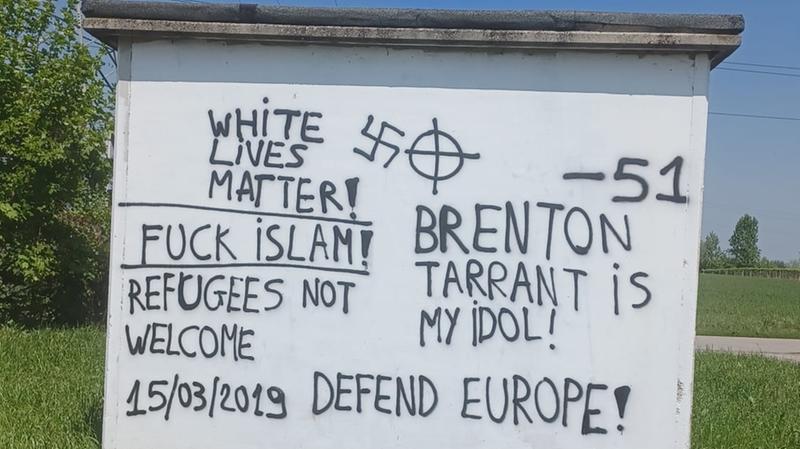 WHITE
LIVES
MATTER!
FUCK ISLAM!
REFUGEES NOT
WELCOME
15/03/2019
-51
BRENTON
TARRANT IS
MY IDOL!
DEFEND EUROPE!